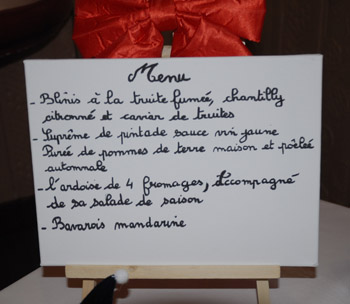 Menu
- Blinis à la truite fumée, chantilly
citronné et caviar de truites
- Suprême de pintade sauce vin jaune
Purée de pommes de terre maison et poêlée
automnale
- L'ardoise de 4 fromages, accompagné
de sa salade de saison
- Bavarois mandarine